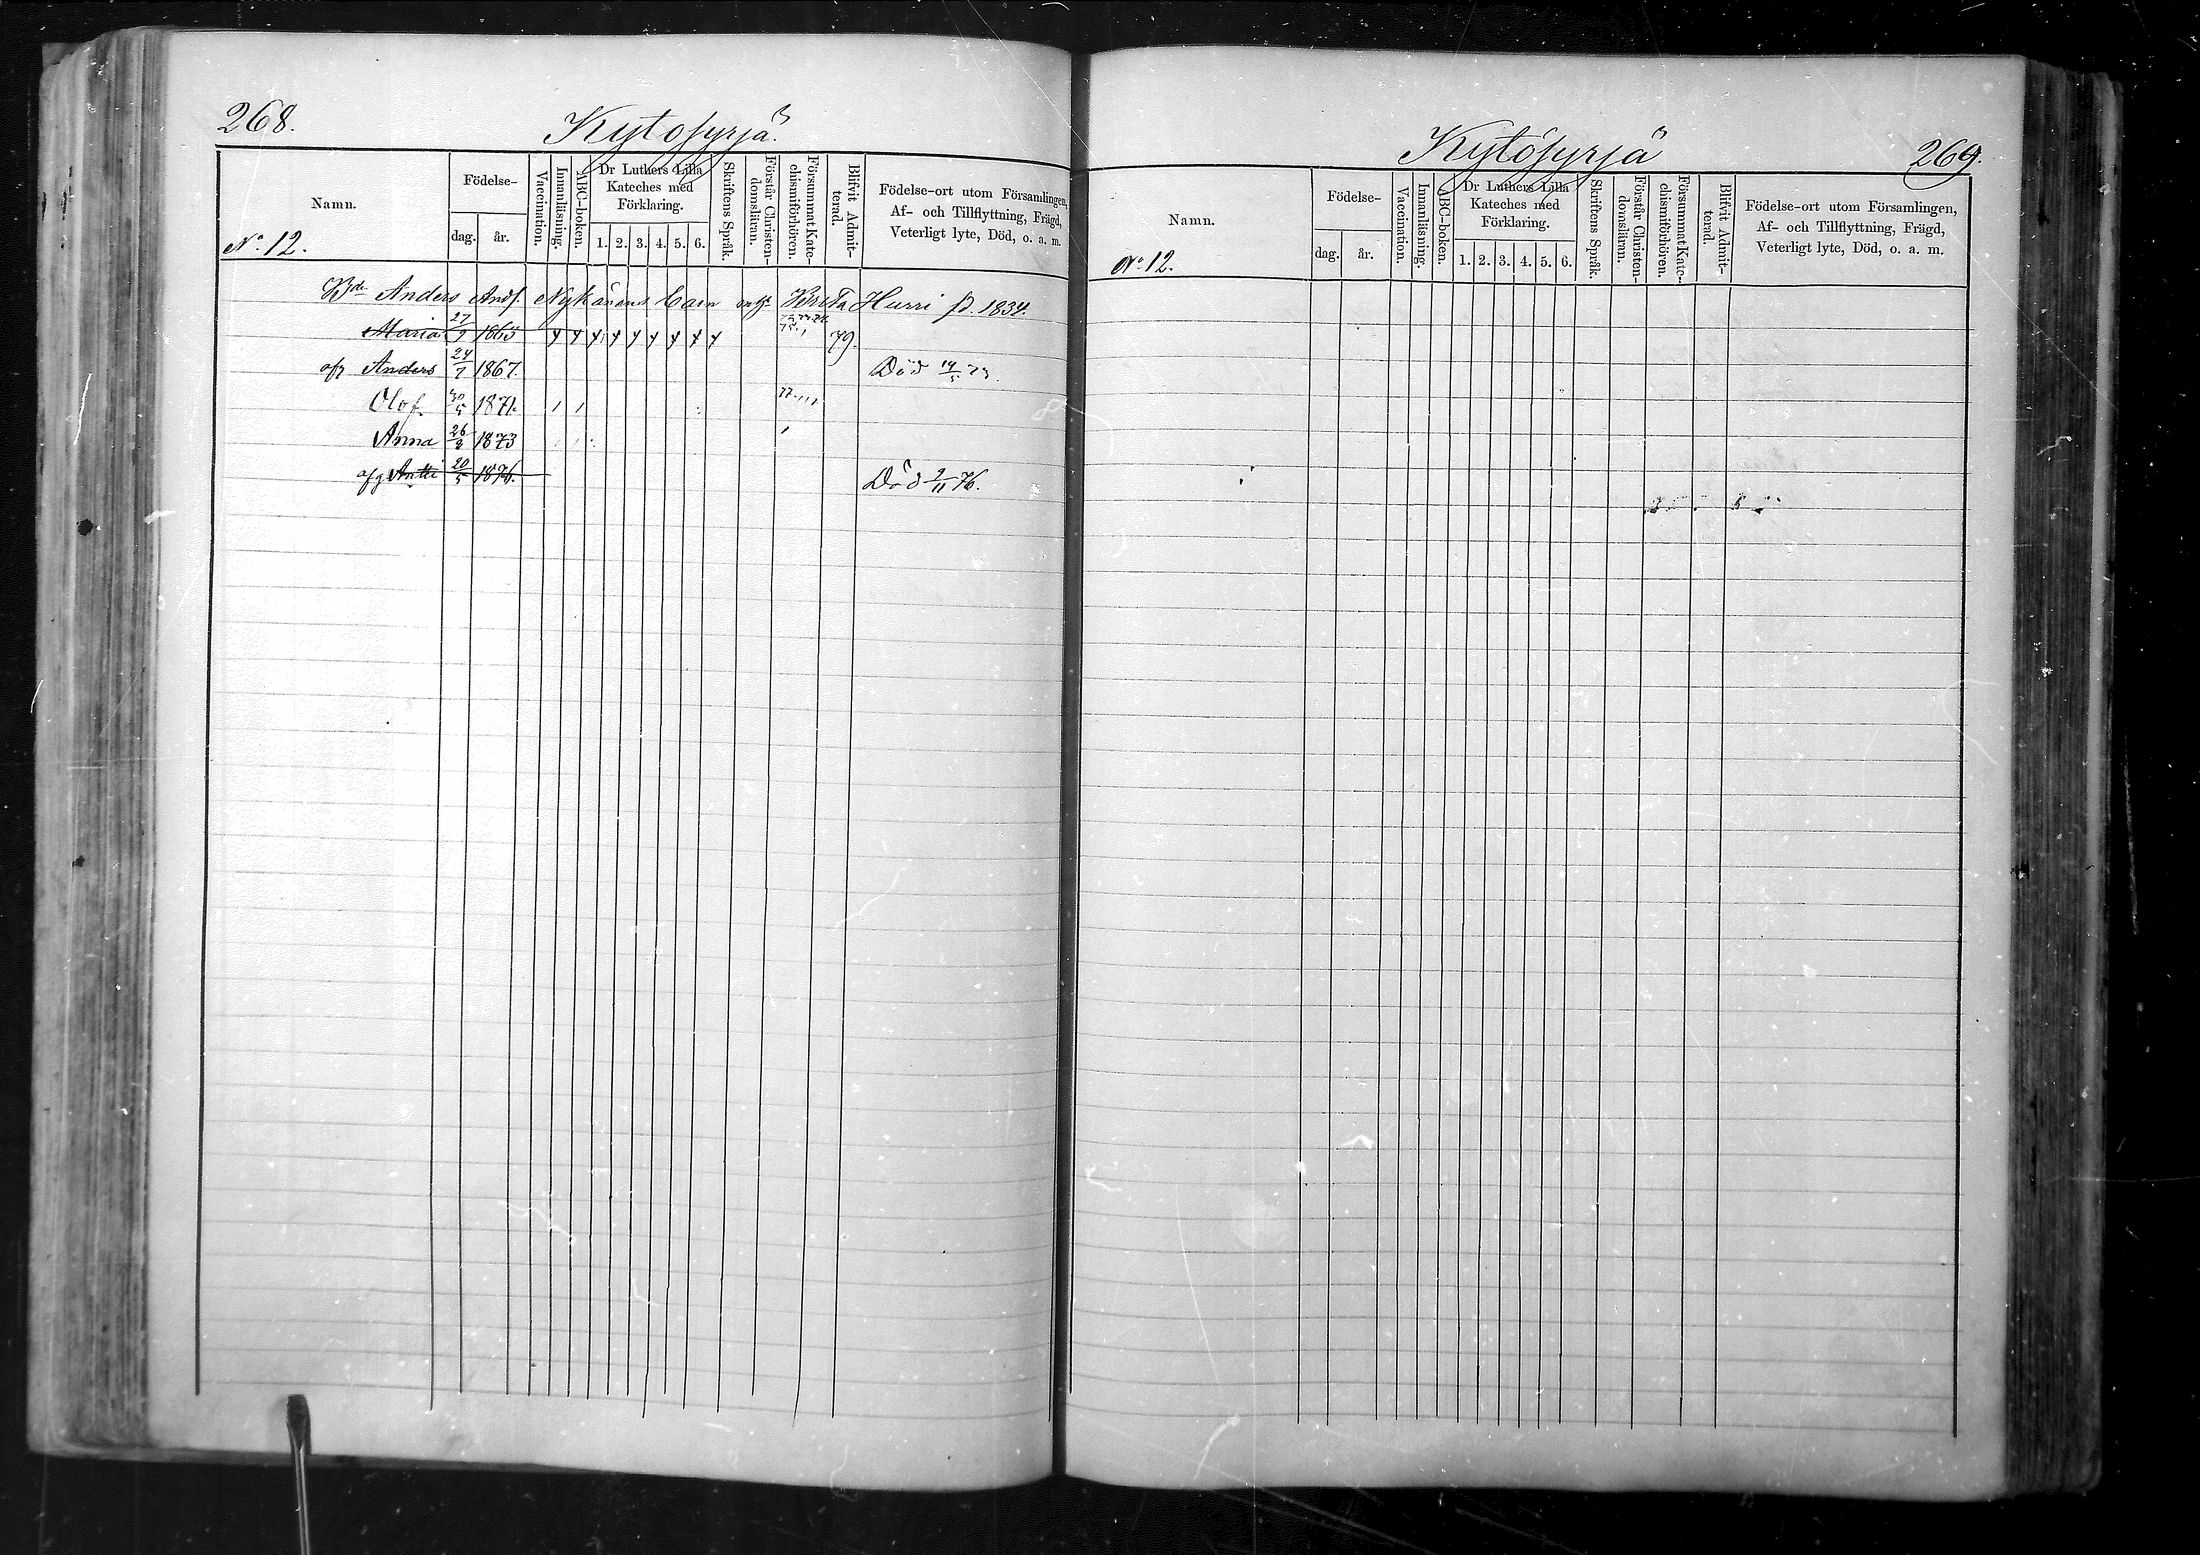 268.
Kytösyrjä.
Namn.
Födelse-
dag. år.
Vaccination.
Innanläsning.
ABC-boken.
Dr Luthers Lilla
Kateches med
Förklaring.
1. 2. 3. 4. 5. 6.
Skriftens Språk.
Förstår Christen-
domsläran.
Försummat Kate-
chismiförhören.
Blifvit Admit-
terad.
Födelse-ort utom Församlingen,
Af- och Tillflyttning, Frägd,
Veterligt lyte, Död, o. a. m.
No 12.
Bde Anders Andf. Nykänens barn Brita Hurri p. 1834.
Maria 27/9 1865 79.
Anders 24/7 1867. Död 19/5 73.
Olof 30/5 1871. 77.
Anna 26/8 1873
Antti 20/5 1876. Död 2/11 76.
Kytösyrjä
269.
Namn.
Födelse-
dag. år.
Vaccination.
Innanläsning.
ABC-boken.
Dr Luthers Lilla
Kateches med
Förklaring.
1. 2. 3. 4. 5. 6.
Skriftens Språk.
Förstår Christen-
domsläran.
Försummat Kate-
chismiförhören.
Blifvit Admit-
terad.
Födelse-ort utom Församlingen,
Af- och Tillflyttning, Frägd,
Veterligt lyte, Död, o. a. m.
No 12.